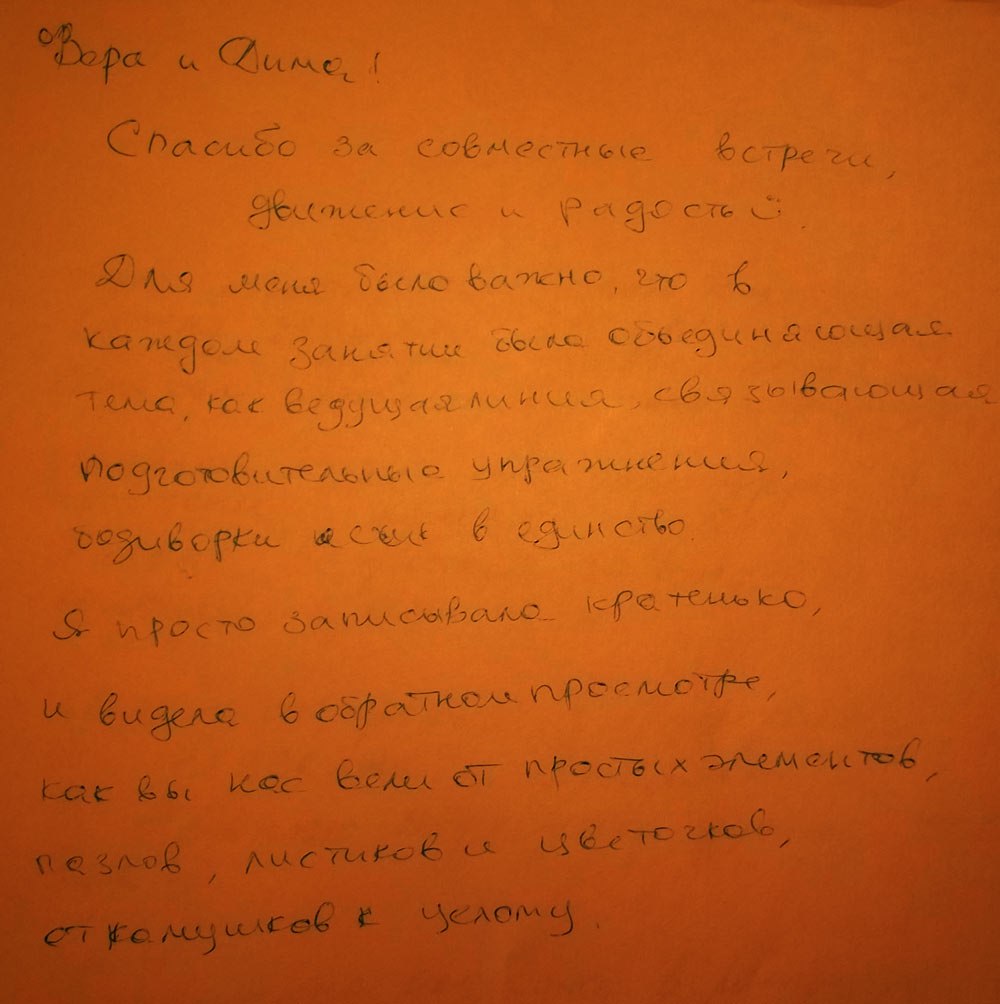 Вера и Дима!
Спасибо за совместные встречи,
движение и радость
Для меня было важно, что в
каждом занятии была объединяющая
тема, как ведущая линия, связывающая
подготовительные упражнения,
бодиворки и в единство.
Я просто записывала кратенько,
и видела в обратном просмотре,
как вы нас вели от простых элементов,
пазлов, листиков и цветочков,
от камушков к целому.